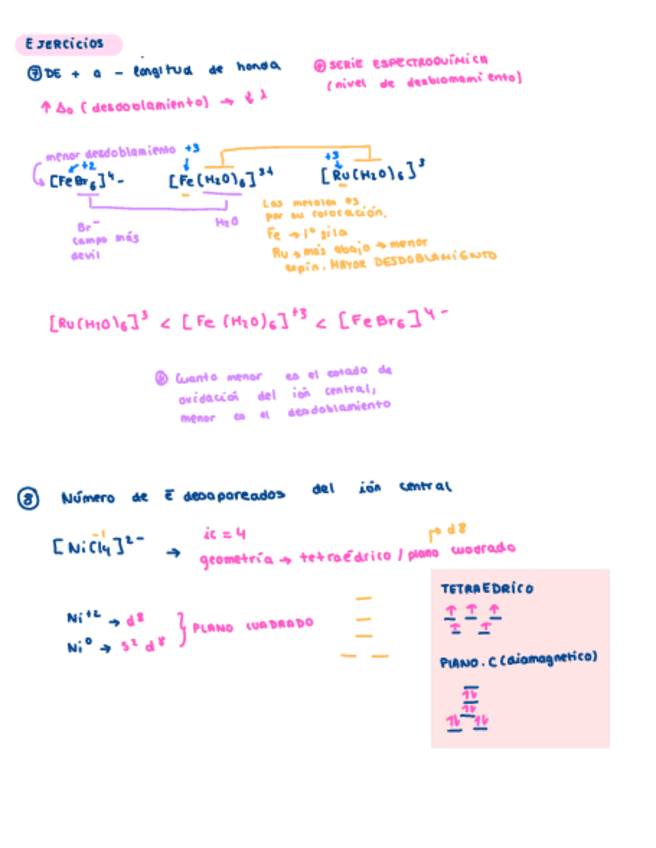 EJERCICIOS
⑦ DE + a - longitud de honda
↑ Δo (desdoblamiento) → ↓ λ
® SERIE ESPECTROQUÍMICA
(nivel de desblomamiento)
menor desdoblamiento
+2 +3 +3
[FeBr6]4- [Fe(H2O)6]3+ [Ru(H2O)6]3
Br- H2O
campo más
devil
Las metales es
por su colocación.
Fe → 1º fila
Ru → más abajo → menor
espín. MAYOR DESDOBLAMIENTO
[Ru(H2O)6]3 < [Fe(H2O)6]+3 < [FeBr6]4-
® Cuanto menor es el estado de
oxidación del ión central,
menor es el desdoblamiento
⑧ Número de ē desapareados del ión central
-1
[NiCl4]2- → ic = 4
d8
geometría → tetraédrico / plano cuadrado
Ni+2 → d8
Ni0 → s2 d8
PLANO CUADRADO
TETRAEDRICO
↑ ↑ ↑
↑ ↑
PLANO.C (diamagnetico)
↑↓
↑↓
↑↓ ↑↓